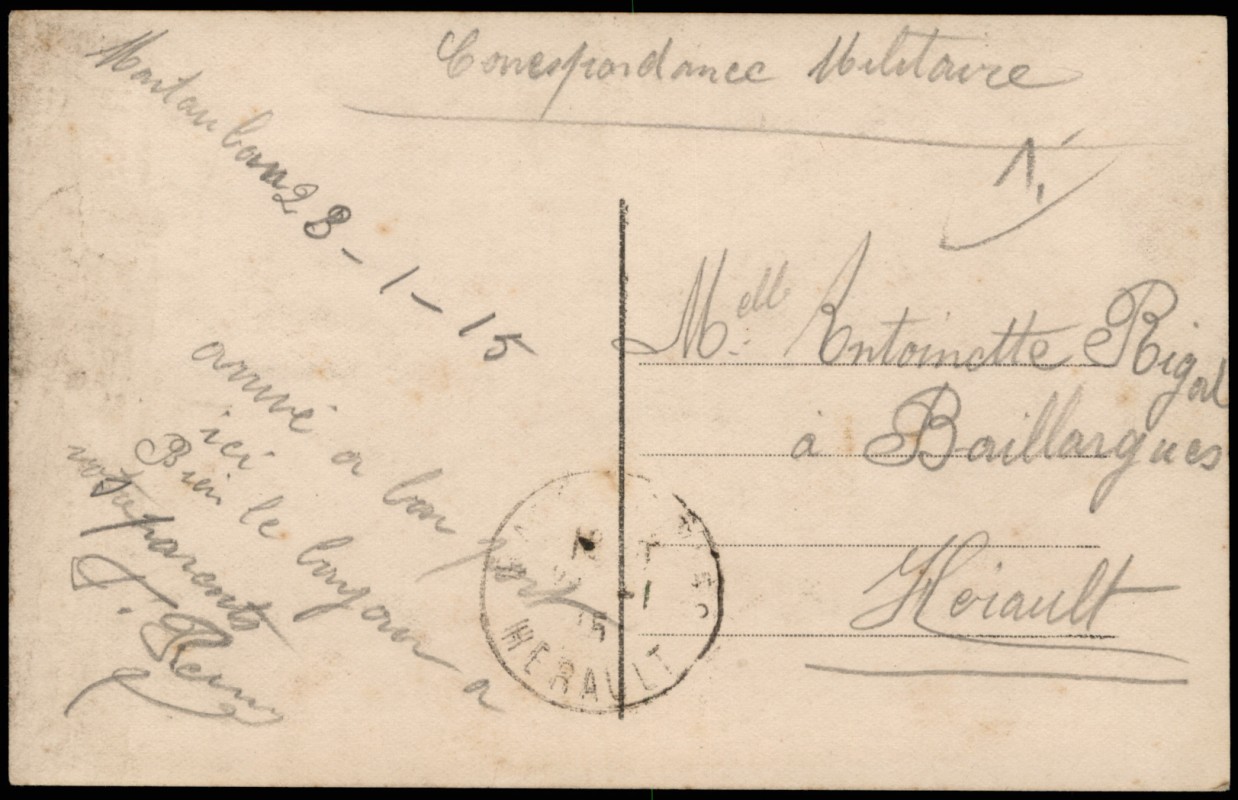 Correspondance Militaire
Montauban 28-1-15
1,
Melle Antoinette Rigal
à Baillargues
Hérault
arrivé a bon port
ici
Bien le bonjour a
votre parents
HERAULT
15